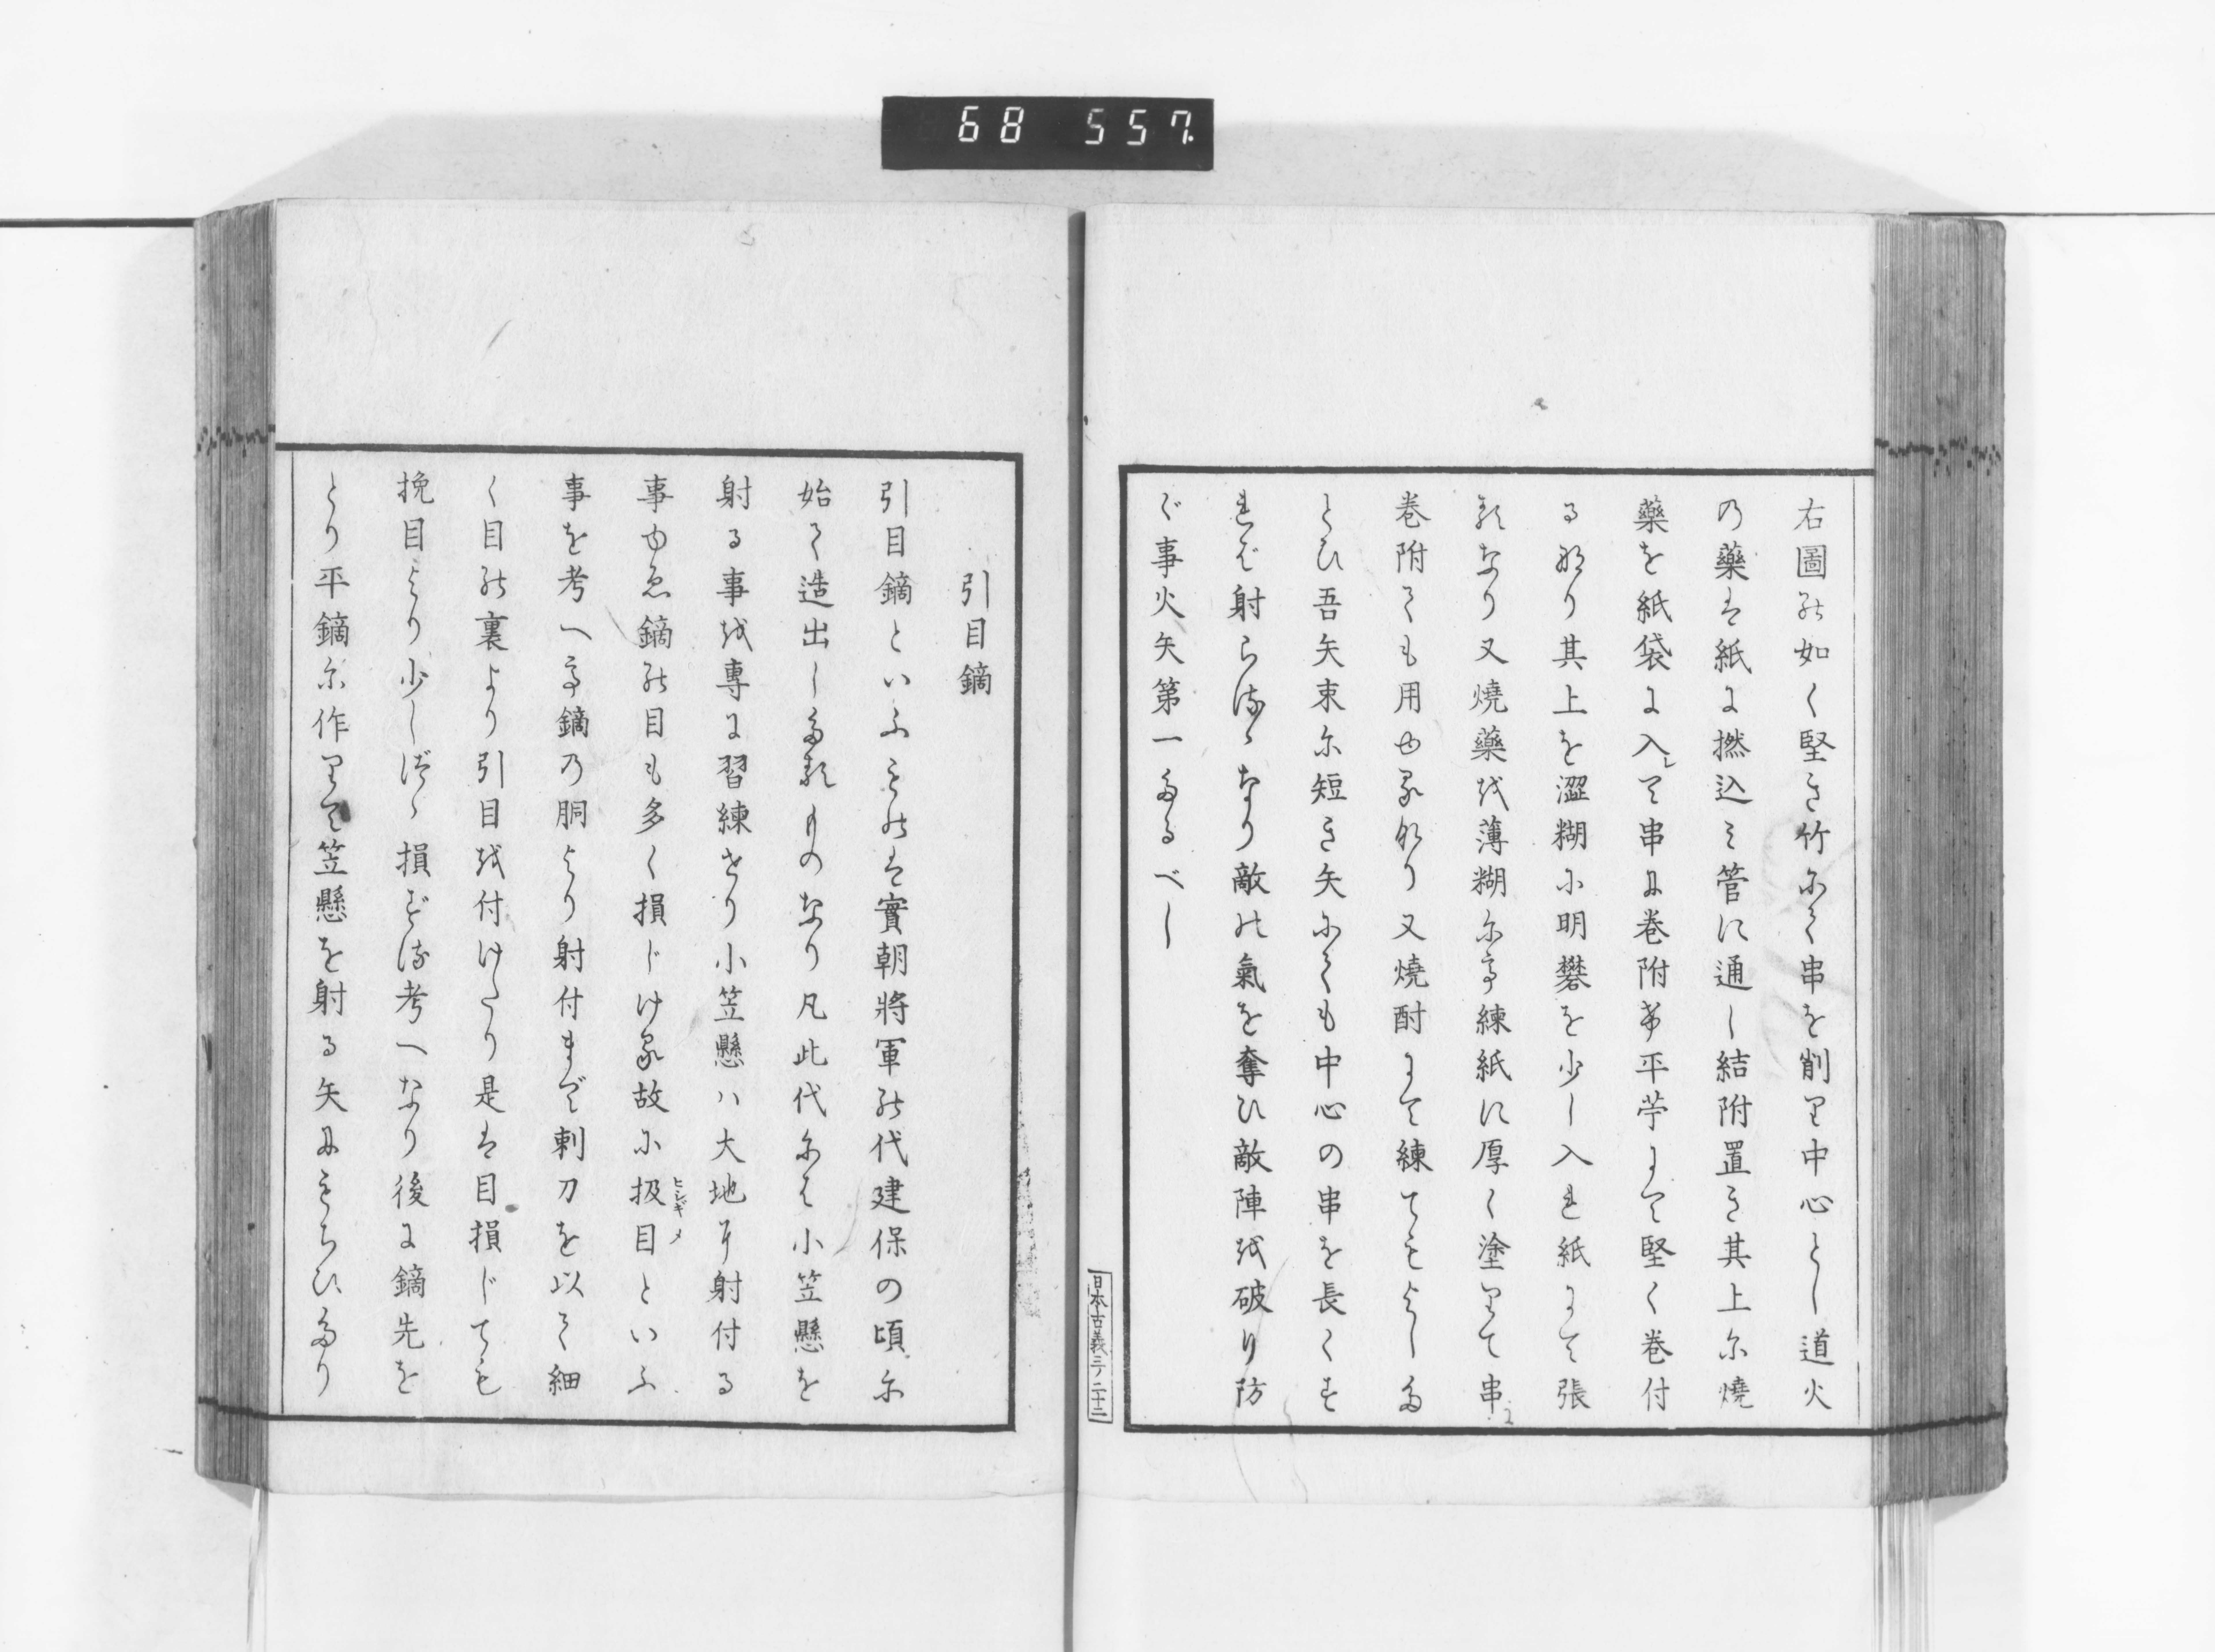 68 557.
右圖の如く堅き竹にて串を削りて中心とし道火
の藥は紙に撚込みて管に通し結附置き其上に燒
藥を紙袋に入レて串に巻附け平苧にて堅く巻付
る也り其上を澀糊に明礬を少し入れ紙にて張
るなり又燒藥を薄糊にて練紙に厚く塗りて串
巻附ても用ゆるなり又燒酎にて練てもよした
とひ吾矢束に短き矢にても中心の串を長くす
れば射らるゝなり敵の氣を奪ひ敵陣を破り防
ぐ事火矢第一たるべし
日本古義三ノ二十二
引目鏑
引目鏑といふものは實朝將軍の代建保の頃に
始て造出したるものなり凡此代には小笠懸を
射る事を專に習練せり小笠懸ハ大地に射付る
事ゆゑ鏑の目も多く損じける故に扱目ヒシギメといふ
事を考へて鏑の胴より射付まで剌刀を以て細
く目の裏より引目を付けたり是は目損じても
挽目より少しづゝ損ずる考へなり後に鏑先を
とり平鏑に作りて笠懸を射る矢にもちひたり